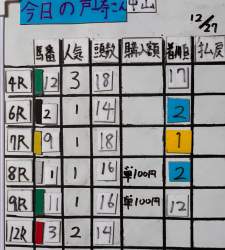 今日の戸崎さん 中山
12/27
馬番 人気 頭数 購入額 着順 払戻
4R 12 3 18 17
6R 2 1 14 2
7R 9 1 18 1
8R 11 1 16 単100円 2
9R 11 1 16 単100円 12
12R 3 2 14